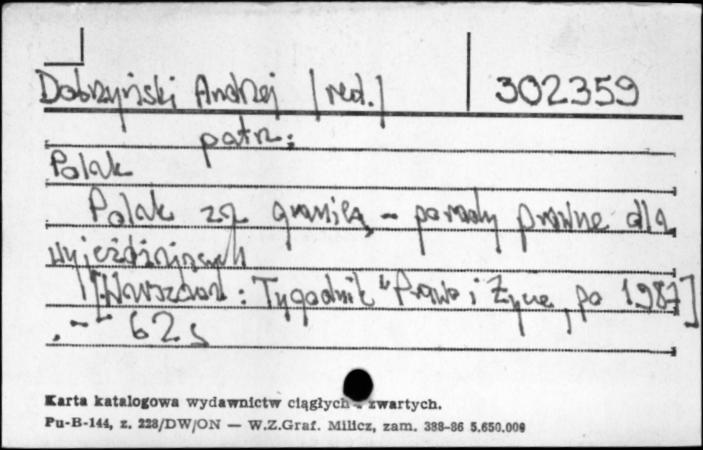 Dobrzyński Andrzej /red./ 302359
patrz:
Polak
Polak za granicą - porady prawne dla
wyjeżdżających
[Warszawa : Tygodnik "Prawo i Życie, po 1987]
.- 62 s
Karta katalogowa wydawnictw ciągłych i zwartych.
Pu-B-144, z. 228/DW/ON — W.Z.Graf. Milicz, zam. 388-86 5.650.000